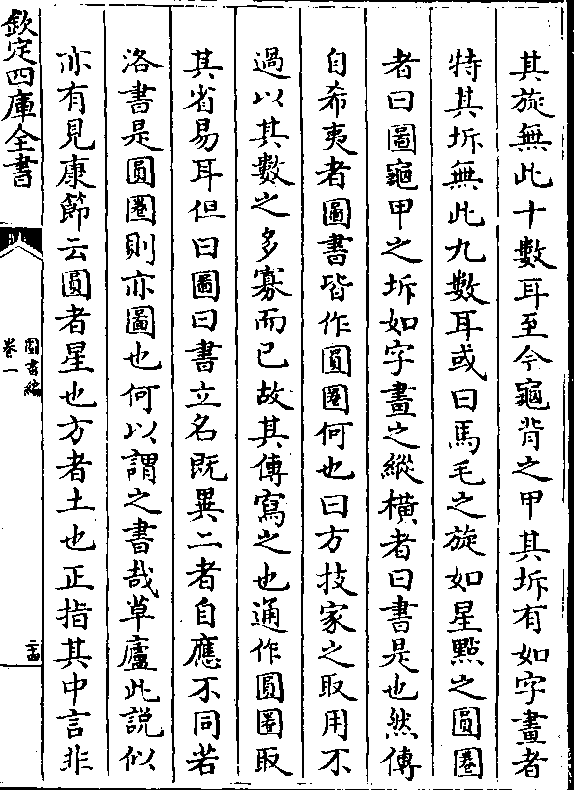 其旋無此十數耳至今龜背之甲其坼有如字畫者
特其坼無此九數耳或曰馬毛之旋如星點之圓圈
者曰圖龜甲之坼如字畫之縱橫者曰書是也然傳
自希夷者圖書皆作圓圈何也曰方技家之取用不
過以其數之多寡而已故其傳寫之也通作圓圈取
其省易耳但曰圖曰書立名既異二者自應不同若
洛書是圓圈則亦圖也何以謂之書哉草廬此說似
亦有見康節云圓者星也方者土也正指其中言非
欽定四庫全書
圖書編
卷一
二十四